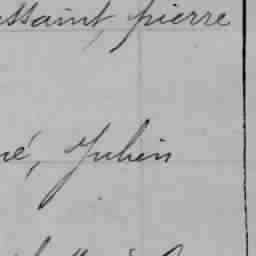 ssaint, pierre
né, Julien